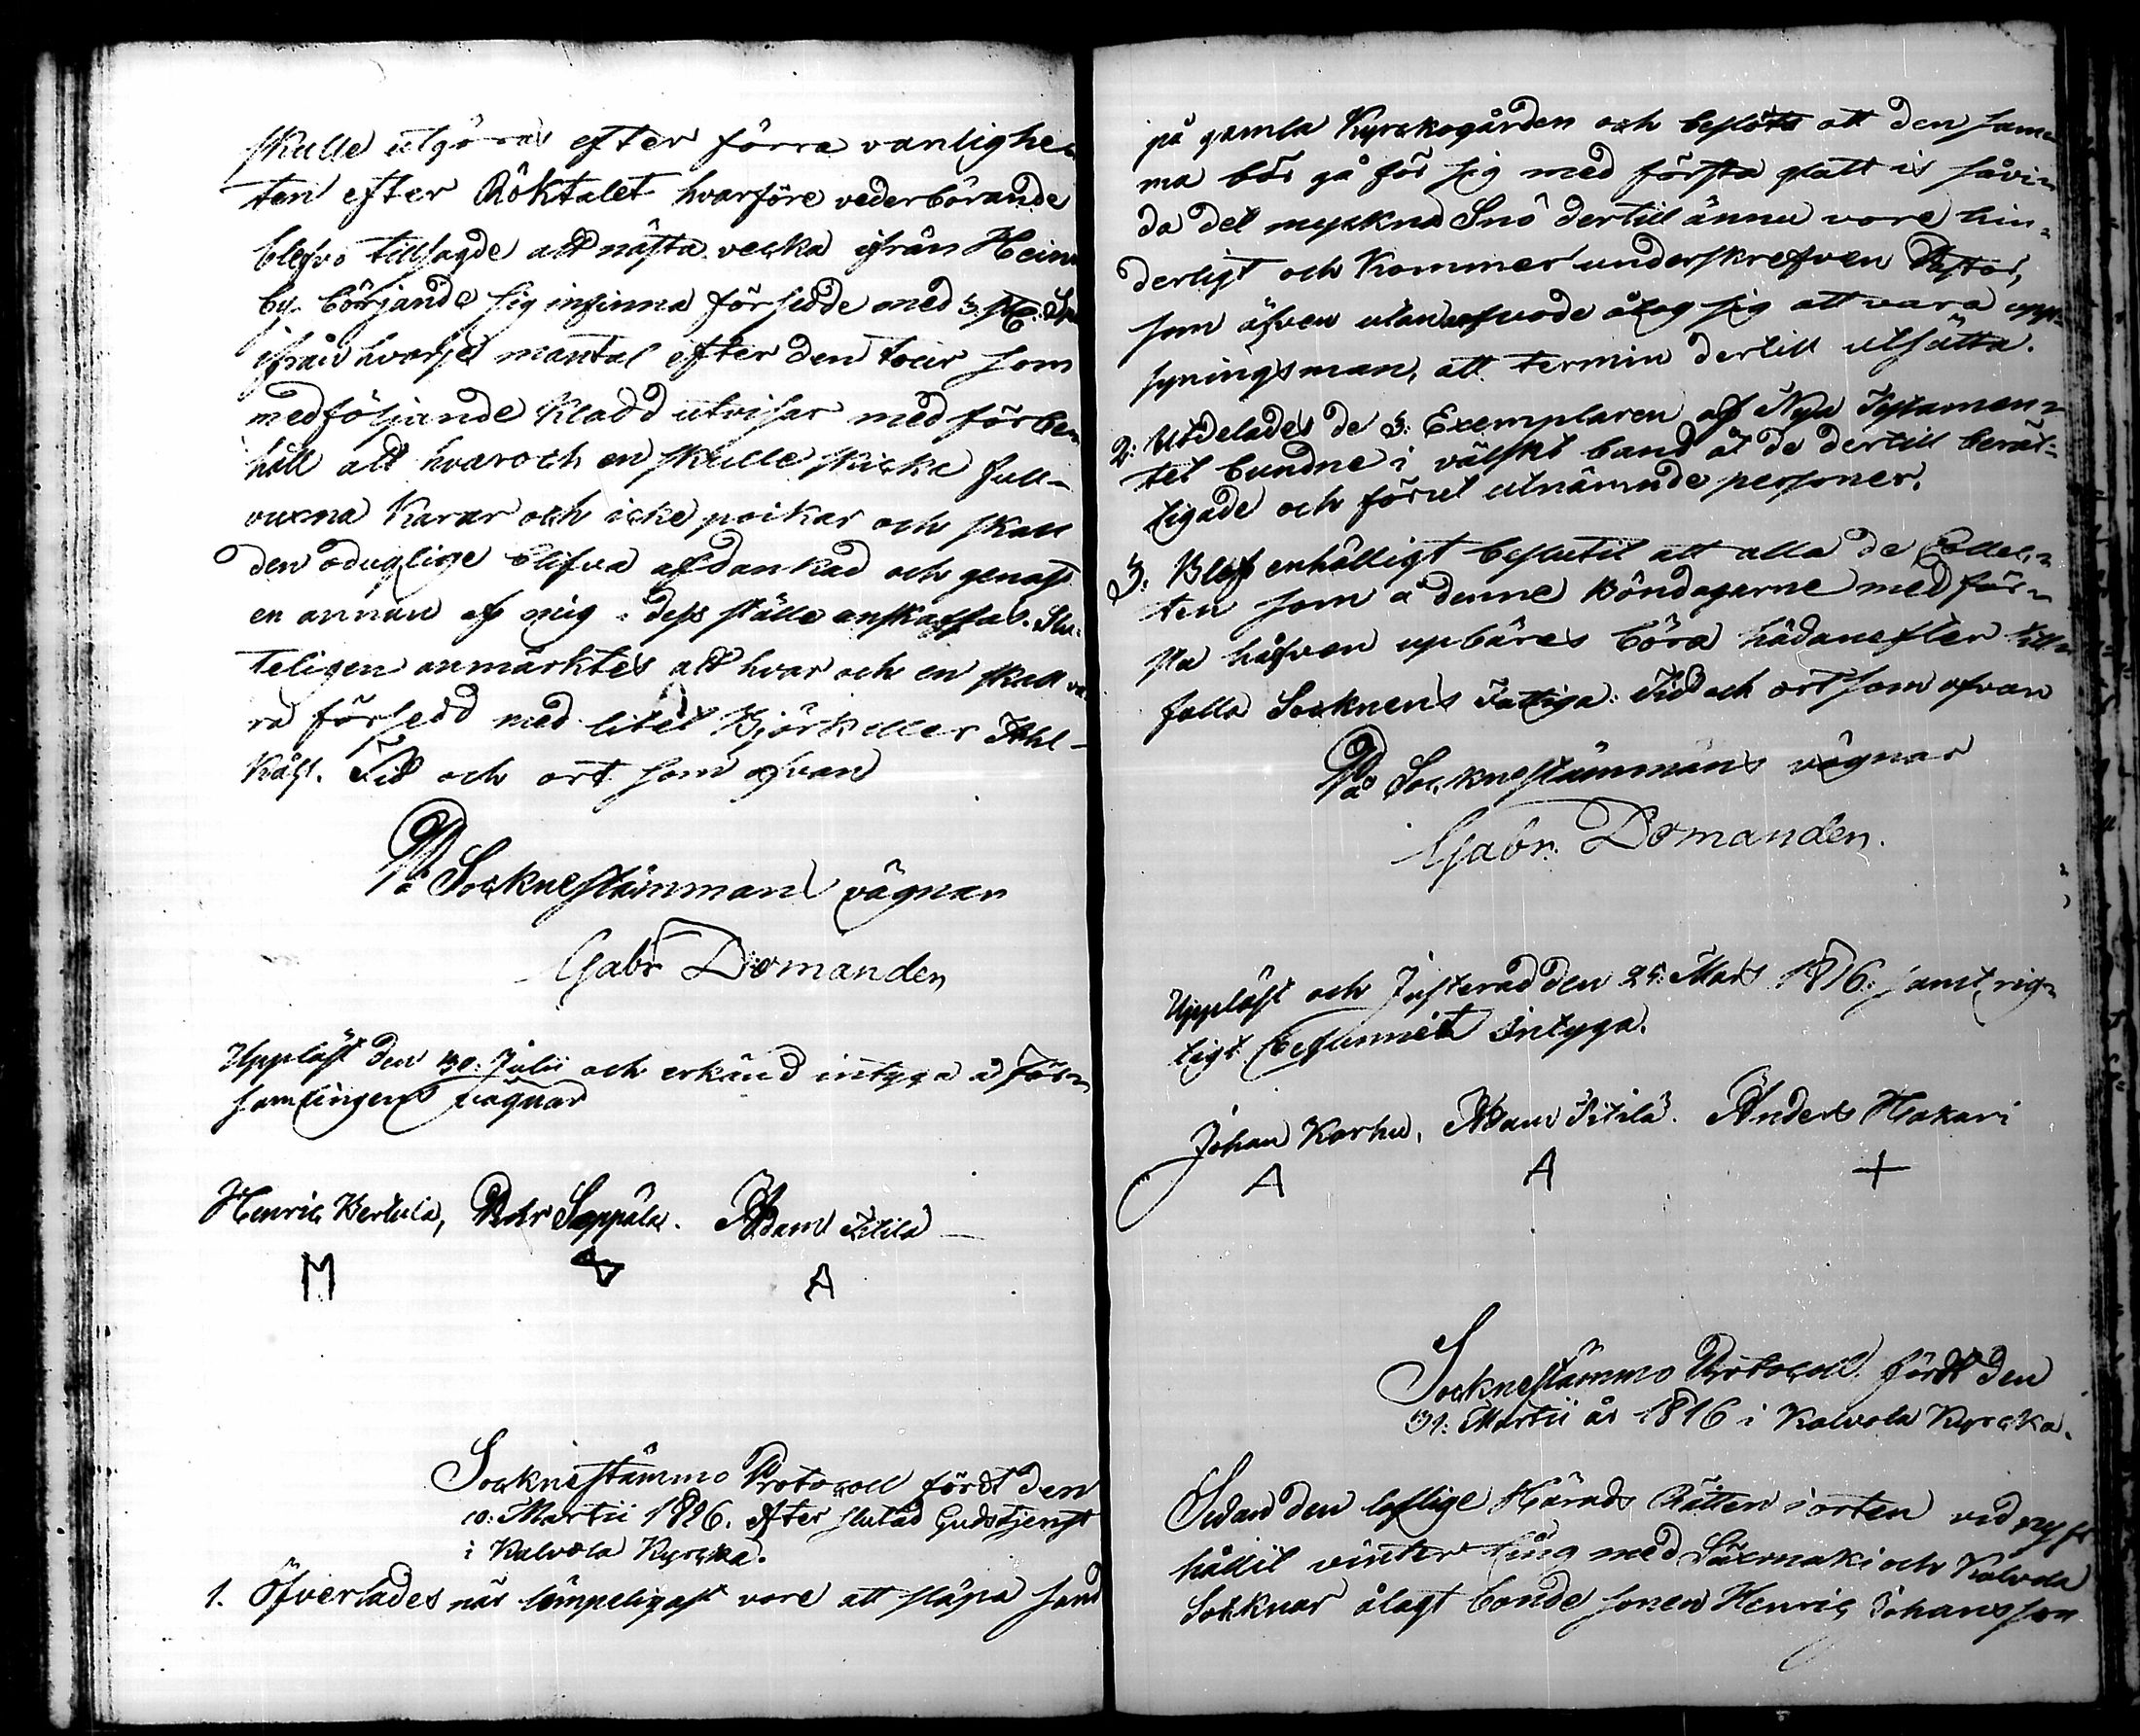 skulle utgöras efter förra vanlighe-
ten efter Röktalet hvarföre vederbörande
blefvo tillsagde att nästa vecka ifrån Hein
by börjande sig infinna försedde med 3
ifrån hvarje mantal efter den tour som
medföljande Kladd utvisar med förbe-
håll att hvar och en skulle skicka full-
vuxna Karar och icke poikar och skall
den oduglige blifva afdankad och genast
en annan af mig i dess ställe anskaffas. Slu-
teligen anmärktes att hvar och en skall va-
ra försedd med litet Björk eller Ahl-
Tid och ort som ofvan
På Socknestämmans vägnar
Gabr Domanden
Uppläst den 30. Julii och erkänd intyga å för-
samlingens vägnar
Henric Bertula, Seppälä. Adam Iitilä
M A
Socknestämmo Protocoll fördt den
10. Martii 1816. efter slutad Gudstjenst
i Kalvola Kyrcka.
1. Öfverlades när lämpeligast vore att släpa sand
på gamla Kyrckogården och beslöts att den sam-
ma bör gå för sig med första glatt is såvi-
da det myckna Snö dertill ännu vore hin-
derligt och Kommer underskrefven Pastor,
som äfven utan arfvode åtog sig att vara upp-
syningsman, att termin dertill utsätta.
2. Utdelades de 3. Exemplaren af Nya Testamen-
tet bundne i välskt band åt de dertill berät-
tigade och förut utnämnde personer.
3. Blef enhälligt beslutit att alla de Collec-
ter som å denne Böndagarne med för-
sta håfven upbäres böra hädanefter till-
falla Socknens Fattiga. Tid och ort som ofvan
På Socknestämmans vägnar
Gabr: Domanden.
Uppläst och Justerad den 25. Mars 1816. samt rig-
tigt befunnit Intyga.
Johan Karhu, Adam Iitilä. Anders Hakari
A A +
Socknestämmo Protocoll fördt den
31. Martii år 1816 i Kalvola Kyrcka.
Sedan den loflige Härads Rätten i orten vid nyss
hållit vinter ting med Säxmäki och Kalvola
Soknar ålagt bonde sonen Henric Johansson